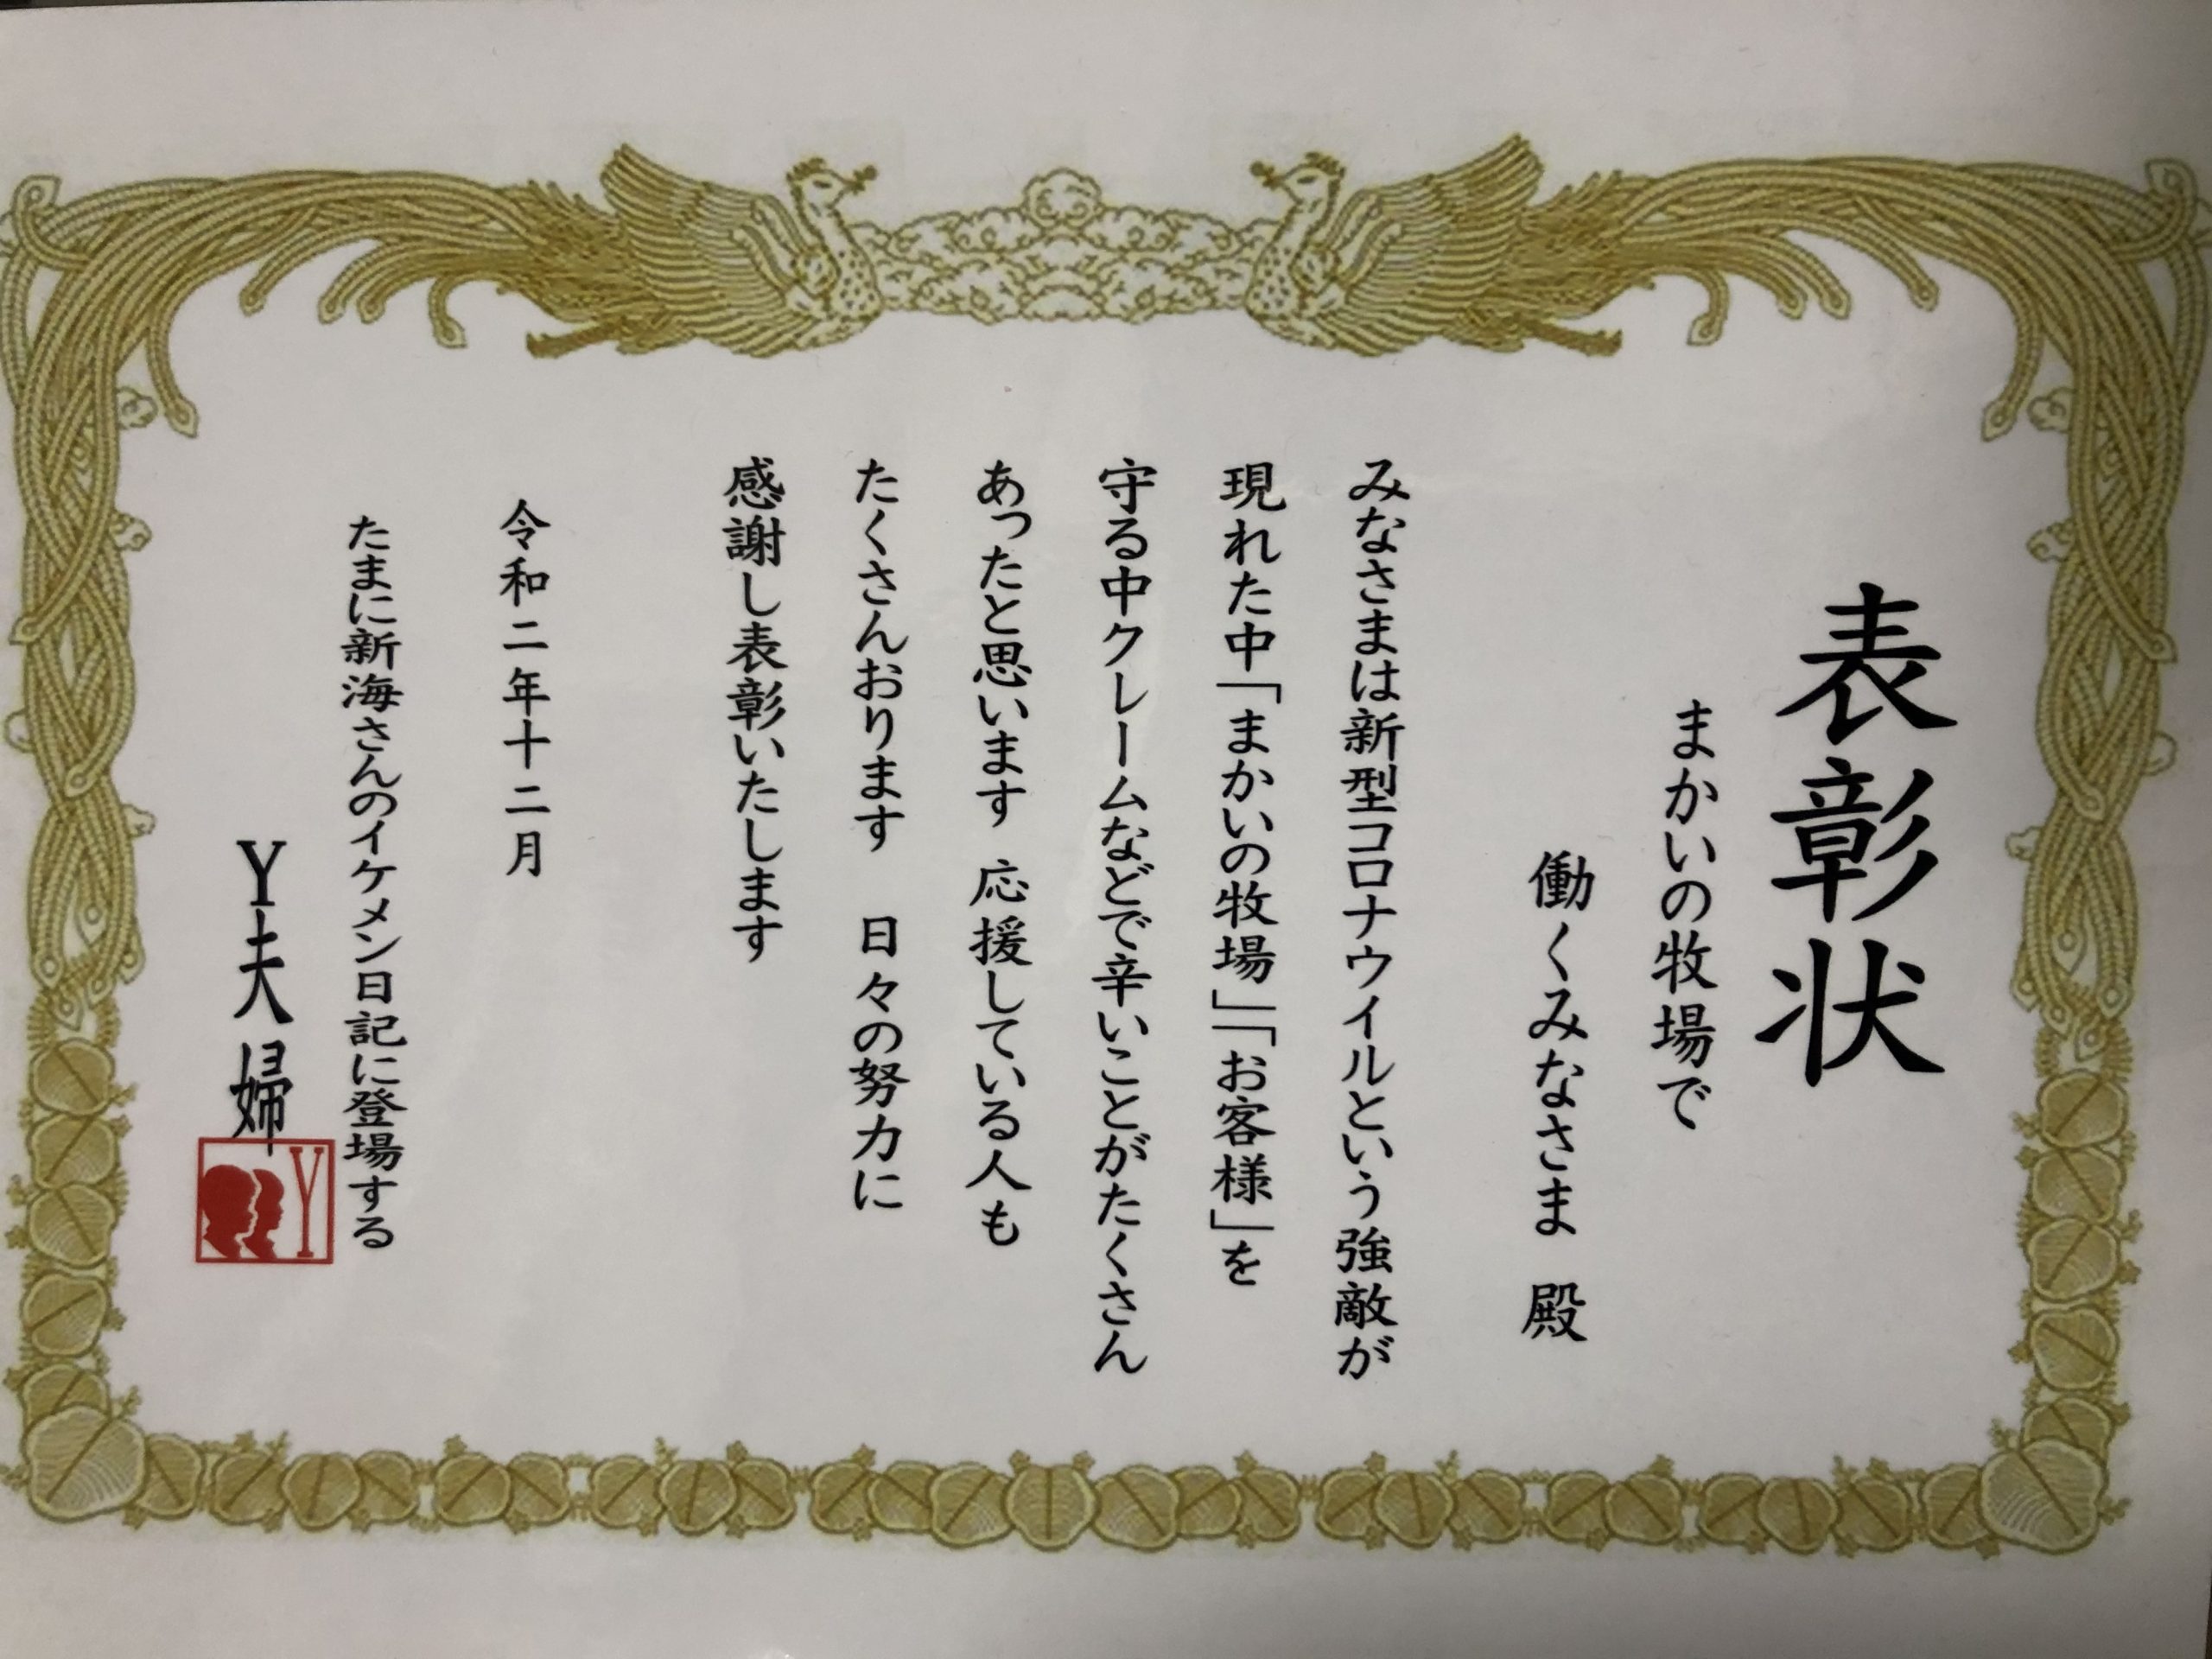 表彰状
まかいの牧場で
働くみなさま 殿
みなさまは新型コロナウイルスという強敵が
現れた中「まかいの牧場」「お客様」を
守る中クレームなどで辛いことがたくさん
あったと思います 応援している人も
たくさんおります 日々の努力に
感謝し表彰いたします
令和二年十二月
たまに新海さんのイケメン日記に登場する
Y夫婦
Y